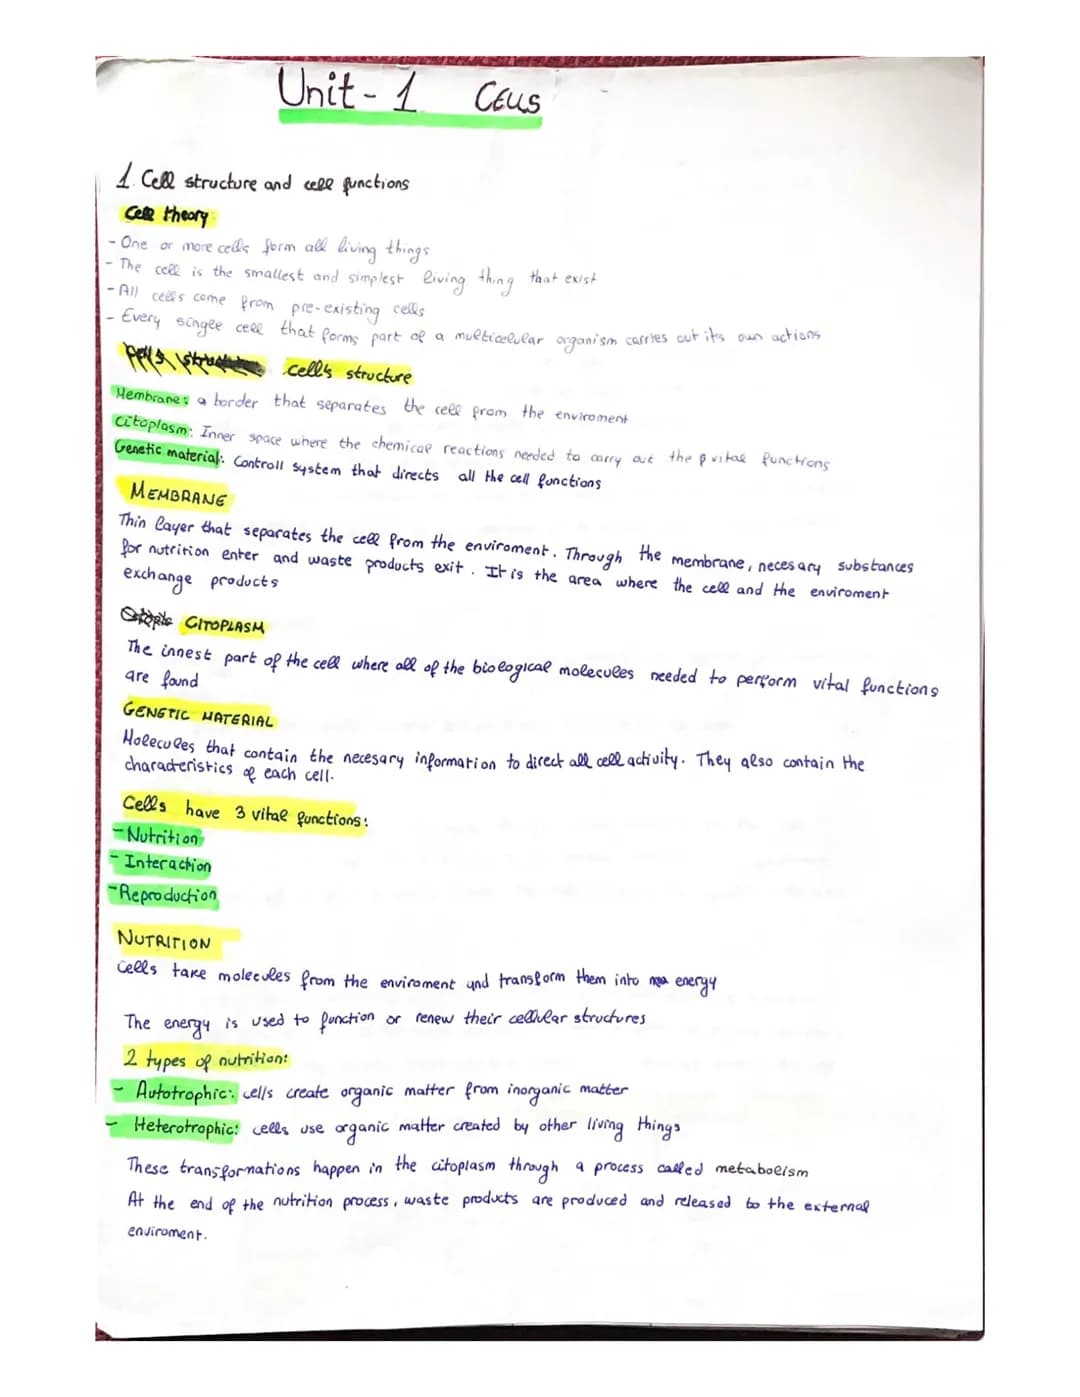 Unit - 1 CELLS
1. Cell structure and cell functions
Cell theory:
- One or more cells form all living things
- The cell is the smallest and simplest living thing that exist
- All cells come from pre-existing cells
- Every singee cell that forms part of a multicelular organism carries out it's own actions
cell's structure
Membrane: a border that separates the cell from the enviroment
Citoplasm: Inner space where the chemical reactions needed to carry out the vital functions
Genetic material: Controll system that directs all the cell functions
MEMBRANE
Thin layer that separates the cell from the enviroment. Through the membrane, necesary substances
for nutrition enter and waste products exit. It is the area where the cell and the enviroment
exchange products
CITOPLASM
The innest part of the cell where all of the biological molecules needed to perform vital functions
are found
GENETIC MATERIAL
Molecules that contain the necesary information to direct all cell activity. They also contain the
characteristics of each cell.
Cells have 3 vital functions:
- Nutrition
- Interaction
- Reproduction
NUTRITION
Cells take molecules from the enviroment and transform them into energy
The energy is used to function or renew their cellular structures
2 types of nutrition:
- Autotrophic: cells create organic matter from inorganic matter
- Heterotrophic: cells use organic matter created by other living things
These transformations happen in the citoplasm through a process called metabolism
At the end of the nutrition process, waste products are produced and released to the external
enviroment.